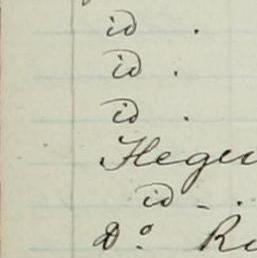 id .
id .
id .
Heger
id - .
Do. Ri